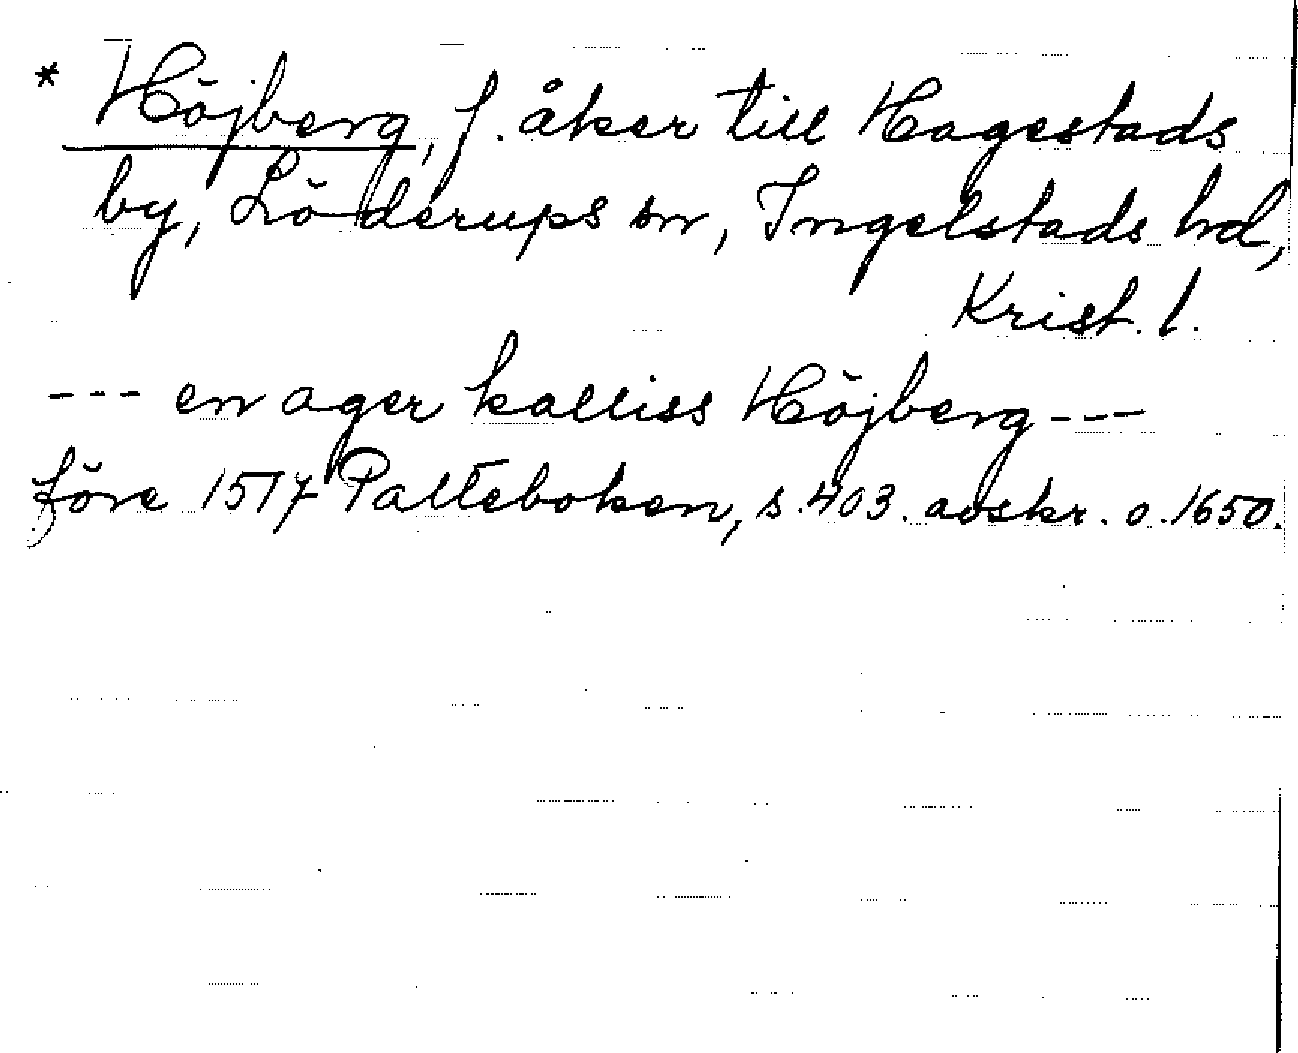 * Höjberg, f. åker till Hagestads
by, Löderups sn, Ingelstads hd,
Krist. l.
--- en ager kalliss Höjberg ---
före 1517 Palteboken, s. 403. avskr. o. 1650.